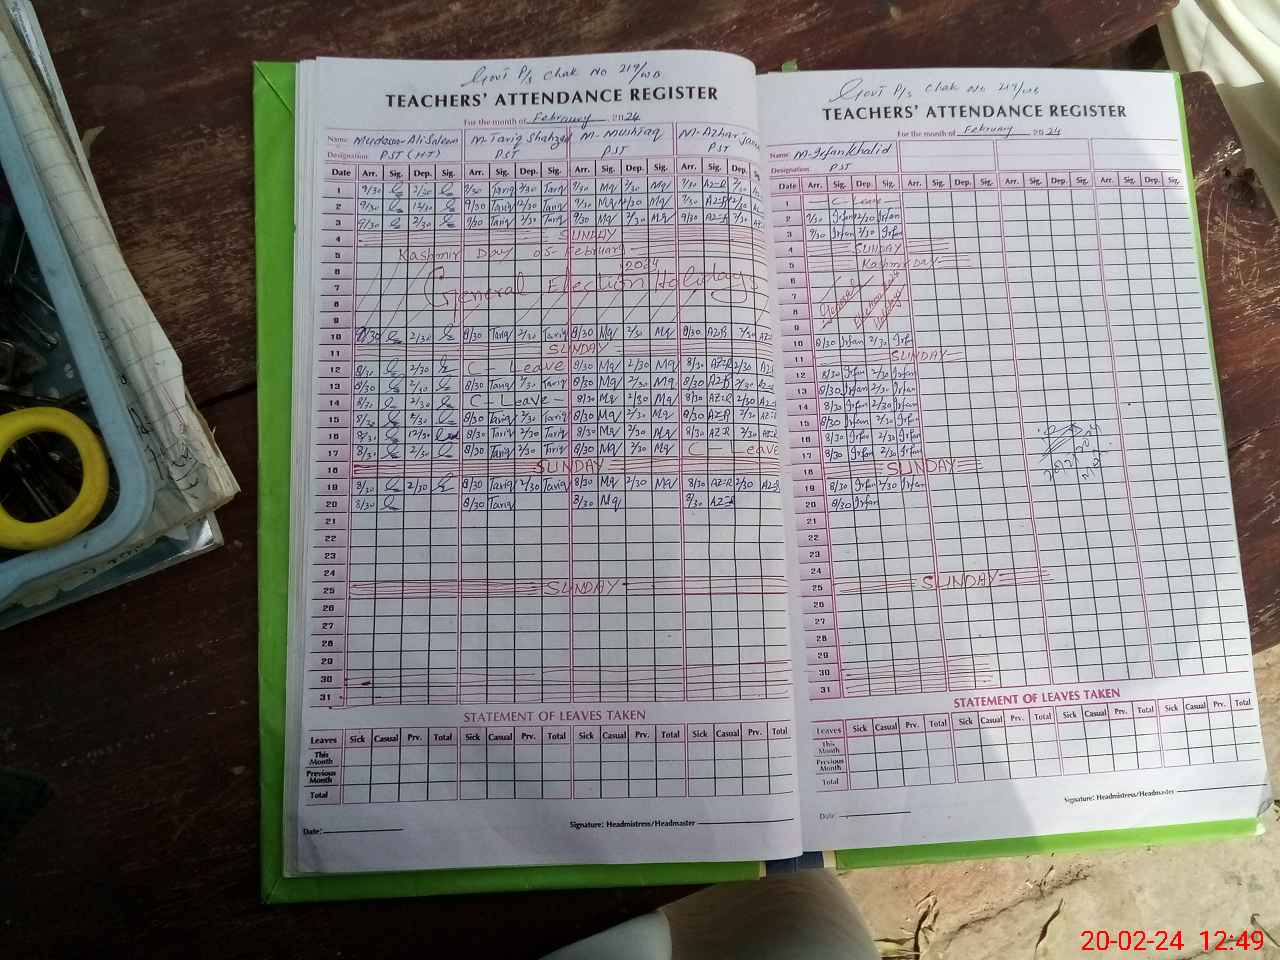 Govt P/S Chak No 219/WB
TEACHERS' ATTENDANCE REGISTER
For the month of February 2024
Name Mudassar Ali Saleem M. Tariq Shahzad M. Mushtaq M. Azhar
Designation PST (HT) PST PST PST
Date Arr. Sig. Dep. Sig. Arr. Sig. Dep. Sig. Arr. Sig. Dep. Sig. Arr. Sig. Dep.
1 9/30 2/30 9/30 Tariq 2/30 Tariq 9/30 Mq 2/30 Mq 9/30 AZ-R
2 9/30 12/30 9/30 Tariq 12/30 Tariq 9/30 Mq 12/30 Mq 9/30 AZ-R
3 9/30 2/30 9/30 Tariq 2/30 Tariq 9/30 Mq 2/30 Mq 9/30 AZ-R 2/30
4 SUNDAY
5 Kashmir Day 05-February 2024
6
7 General Election Holidays
8
9
10 8/30 2/30 8/30 Tariq 2/30 Tariq 8/30 Mq 2/30 Mq 8/30 AZ-R 2/30
11 SUNDAY
12 8/30 2/30 C-Leave 8/30 Mq 2/30 Mq 8/30 AZ-R 2/30 AZ-R
13 8/30 2/30 8/30 Tariq 2/30 Tariq 8/30 Mq 2/30 Mq 8/30 AZ-R 2/30 AZ-R
14 8/30 2/30 C-Leave 8/30 Mq 2/30 Mq 8/30 AZ-R 2/30 AZ-R
15 8/30 2/30 8/30 Tariq 2/30 Tariq 8/30 Mq 2/30 Mq 8/30 AZ-R 2/30 AZ-R
16 8/30 12/30 8/30 Tariq 2/30 Tariq 8/30 Mq 2/30 Mq 8/30 AZ-R 2/30 AZ-R
17 8/30 2/30 8/30 Tariq 2/30 Tariq 8/30 Mq 2/30 Mq C-Leave
18 SUNDAY
19 8/30 2/30 8/30 Tariq 2/30 Tariq 8/30 Mq 2/30 Mq 8/30 AZ-R 2/30 AZ-R
20 8/30 8/30 Tariq 8/30 Mq 8/30 AZ-R
21
22
23
24
25 SUNDAY
26
27
28
29
30
31
STATEMENT OF LEAVES TAKEN
Leaves Sick Casual Prv. Total Sick Casual Prv. Total Sick Casual Prv. Total Sick Casual Prv. Total
This Month
Previous Month
Total
Date: Signature: Headmistress/Headmaster
Govt P/S Chak No 219/WB
TEACHERS' ATTENDANCE REGISTER
For the month of February 2024
Name M. Irfan Khalid
Designation PST
Date Arr. Sig. Dep. Sig. Arr. Sig. Dep. Sig. Arr. Sig. Dep. Sig. Arr. Sig. Dep. Sig.
1 C-Leave
2 9/30 Irfan 12/30 Irfan
3 9/30 Irfan 2/30 Irfan
4 SUNDAY
5 Kashmir Day
6
7 General
8
9
10 8/30 Irfan 2/30 Irfan
11 SUNDAY
12 8/30 Irfan 2/30 Irfan
13 8/30 Irfan 2/30 Irfan
14 8/30 Irfan 2/30 Irfan
15 8/30 Irfan 2/30 Irfan
16 8/30 Irfan 2/30 Irfan
17 8/30 Irfan 2/30 Irfan
18 SUNDAY
19 8/30 Irfan 2/30 Irfan
20 8/30 Irfan
21
22
23
24
25 SUNDAY
26
27
28
29
30
31
STATEMENT OF LEAVES TAKEN
Leaves Sick Casual Prv. Total Sick Casual Prv. Total Sick Casual Prv. Total Sick Casual Prv. Total
This Month
Previous Month
Total
Signature: Headmistress/Headmaster
Date:
20-02-24 12:49